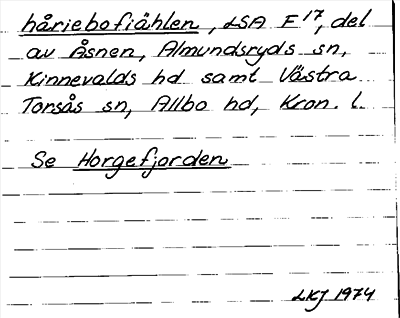 håriebofiählen, LSA F 17, del
av Åsnen, Almundsryds sn,
Kinnevalds hd samt Västra
Torsås sn, Allbo hd, Kron. l.
Se Horgefjorden
LKJ 1974